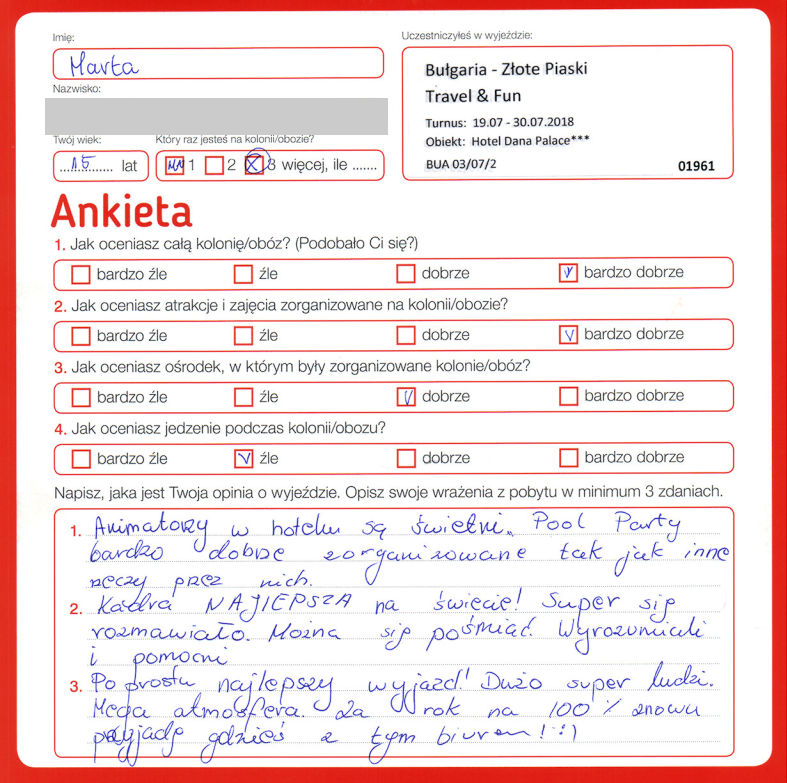 Imię:
Marta
Nazwisko:
Twój wiek:
15 lat
Który raz jesteś na kolonii/obozie?
1 2 3 więcej, ile .......
Uczestniczyłeś w wyjeździe:
Bułgaria - Złote Piaski
Travel & Fun
Turnus: 19.07 - 30.07.2018
Obiekt: Hotel Dana Palace***
BUA 03/07/2 01961
Ankieta
1. Jak oceniasz całą kolonię/obóz? (Podobało Ci się?)
bardzo źle źle dobrze bardzo dobrze
2. Jak oceniasz atrakcje i zajęcia zorganizowane na kolonii/obozie?
bardzo źle źle dobrze bardzo dobrze
3. Jak oceniasz ośrodek, w którym były zorganizowane kolonie/obóz?
bardzo źle źle dobrze bardzo dobrze
4. Jak oceniasz jedzenie podczas kolonii/obozu?
bardzo źle źle dobrze bardzo dobrze
Napisz, jaka jest Twoja opinia o wyjeździe. Opisz swoje wrażenia z pobytu w minimum 3 zdaniach.
1. Animatorzy w hotelu są świetni. Pool Party
bardzo dobrze zorganizowane tak jak inne
rzeczy przez nich.
2. Kadra NAJLEPSZA na świecie! Super się
rozmawiało. Można się pośmiać. Wyrozumiali
i pomocni
3. Po prostu najlepszy wyjazd! Dużo super ludzi.
Mega atmosfera. Za rok na 100% znowu
przyjadę gdzieś z tym biurem! :)